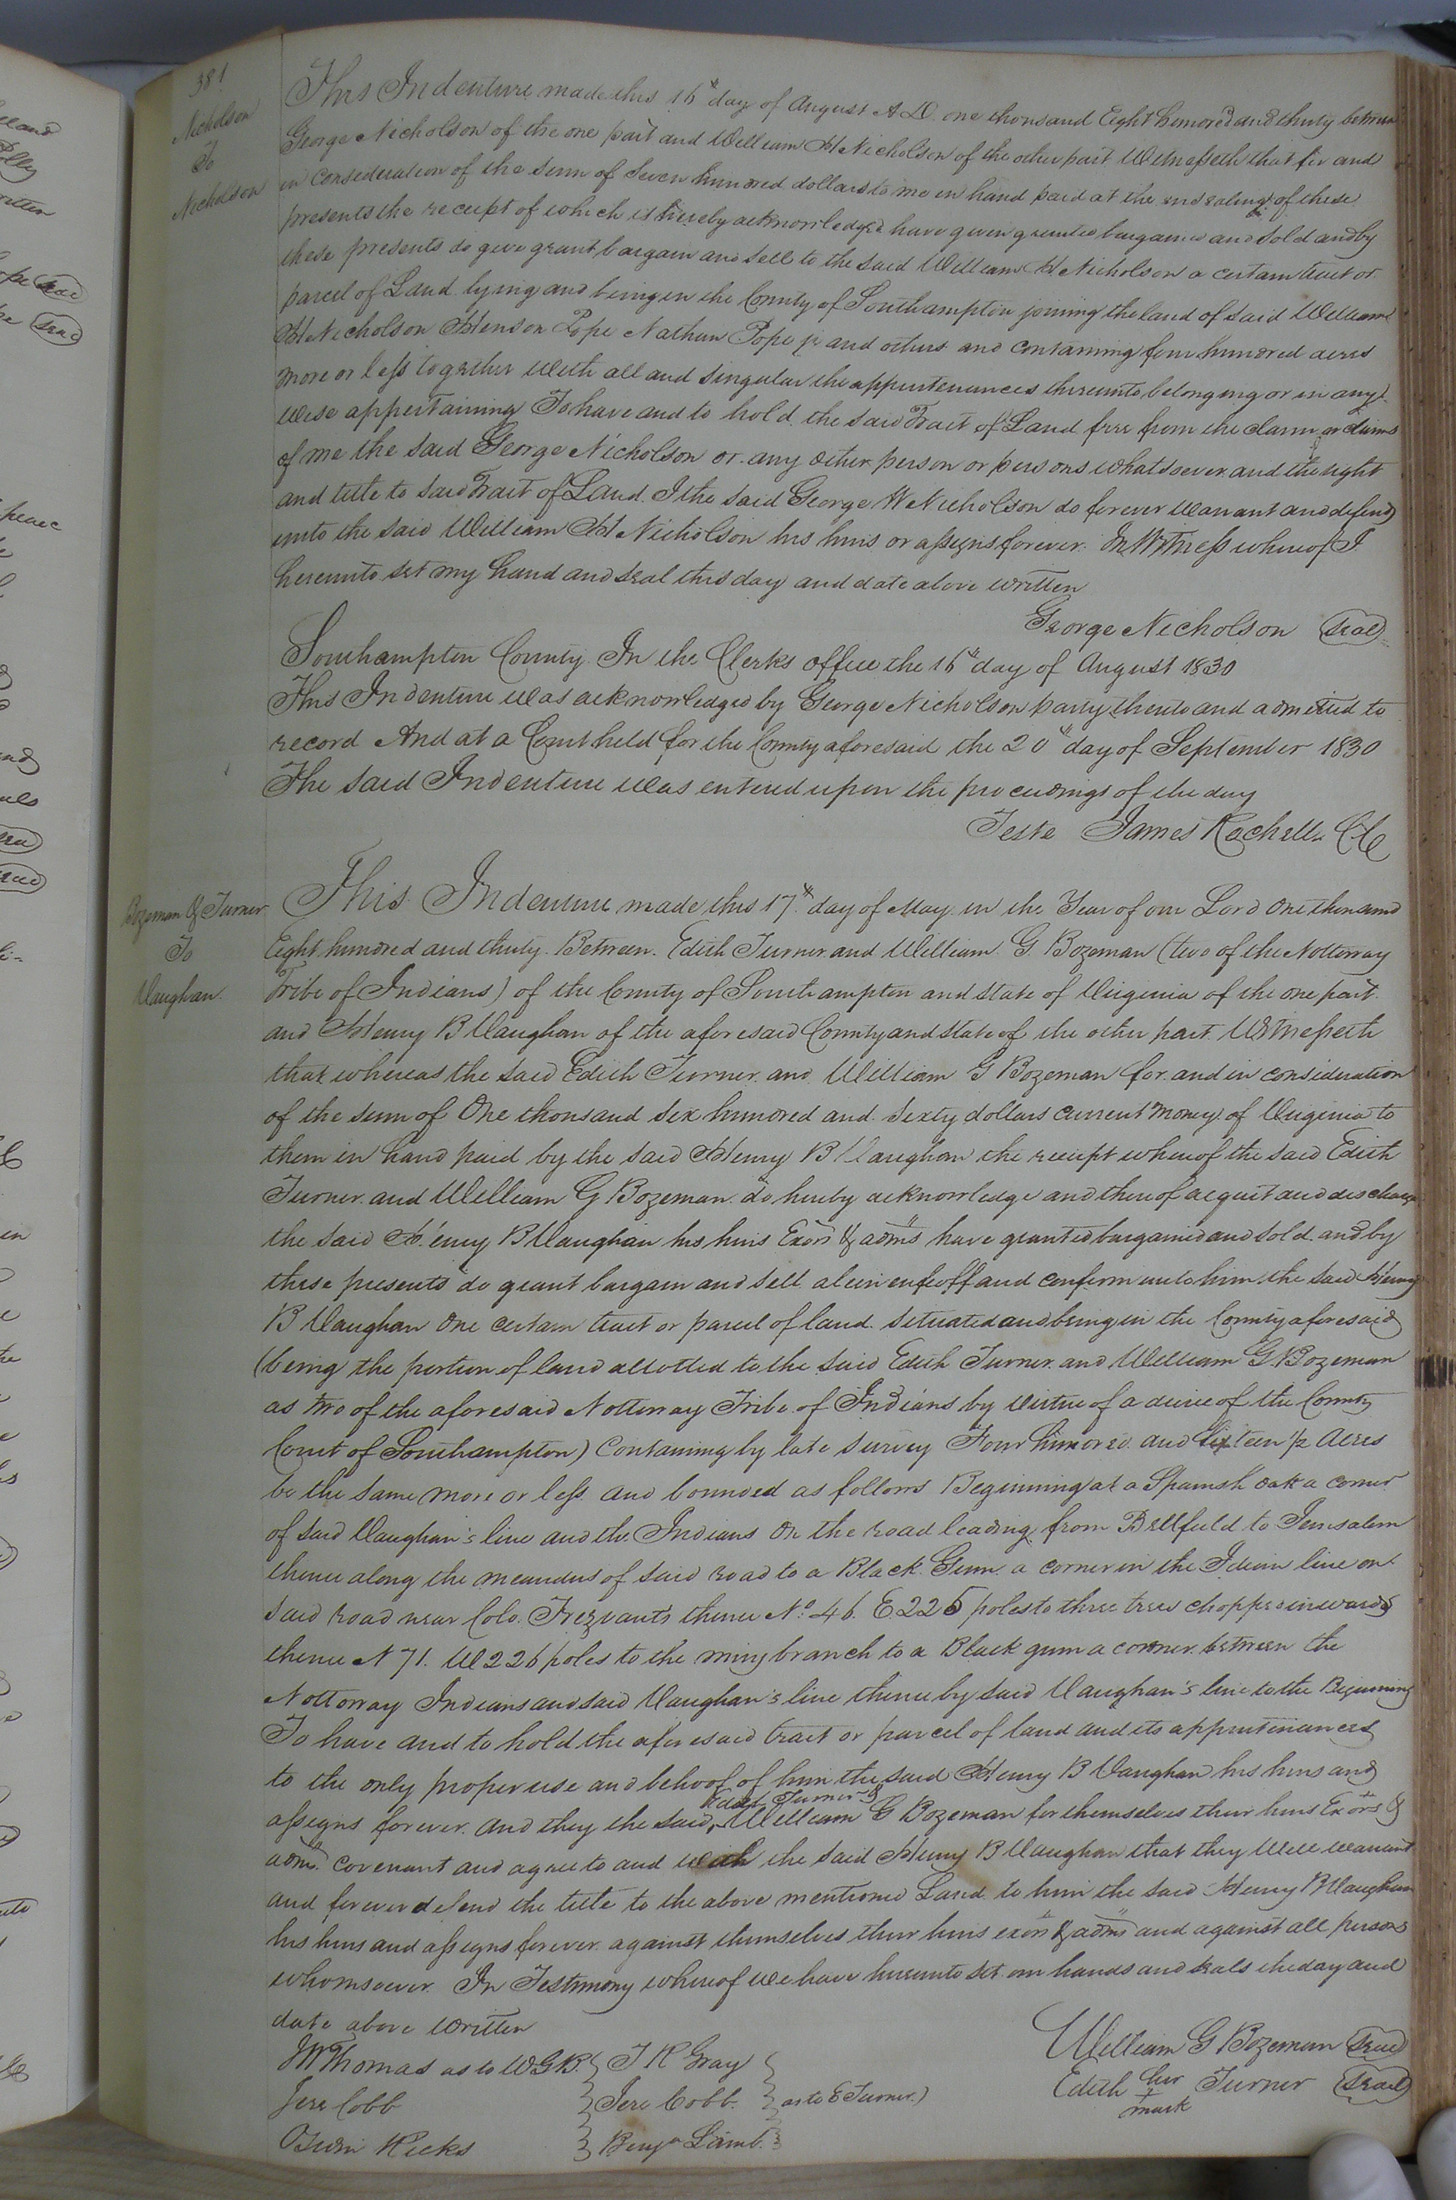 381
Nicholson
To
Nicholson
This Indenture made this 16th day of August A.D. one thousand Eight hundred and thirty between
George Nicholson of the one part and William H Nicholson of the other part Witnesseth that for and
in consideration of the sum of Seven hundred dollars to me in hand paid at the ensealing of these
presents the receipt of which is hereby acknowledged have given granted bargained and sold and by
these presents do give grant bargain and sell to the said William H Nicholson a certain tract or
parcel of Land lying and being in the County of Southampton joining the land of said William
H Nicholson Henson Pope Nathan Pope jr and others and containing four hundred acres
more or less together with all and singular the appurtenances thereunto belonging or in any
wise appertaining To have and to hold the said Tract of Land free from the claim or claims
of me the said George Nicholson or any other person or persons whatsoever and the right
and title to said Tract of Land I the said George W Nicholson do forever warrant and defend
unto the said William H Nicholson his heirs or assigns forever. In Witness whereof I
hereunto set my hand and seal this day and date above written
George Nicholson (Seal)
Southampton County In the Clerks office the 16th day of August 1830
This Indenture was acknowledged by George Nicholson party thereto and admitted to
record And at a Court held for the County aforesaid the 20th day of September 1830
The said Indenture was entered upon the proceedings of the day
Teste James Rochelle CC
Bozeman & Turner
To
Vaughan
This Indenture made this 17th day of May in the Year of our Lord One thousand
Eight hundred and thirty Between Edith Turner and William G Bozeman (two of the Nottoway
Tribe of Indians) of the County of Southampton and State of Virginia of the one part
and Henry B Vaughan of the aforesaid County and State of the other part Witnesseth
that whereas the said Edith Turner and William G Bozeman for and in consideration
of the sum of One thousand six hundred and sixty dollars current money of Virginia to
them in hand paid by the said Henry B Vaughan the receipt whereof the said Edith
Turner and William G Bozeman do hereby acknowledge and thereof acquit and discharge
the said Henry B Vaughan his heirs Exors & adms have granted bargained and sold and by
these presents do grant bargain and sell alien enfeoff and confirm unto him the said Henry
B Vaughan One certain tract or parcel of land situated and being in the County aforesaid
(being the portion of land allotted to the said Edith Turner and William G Bozeman
as two of the aforesaid Nottoway Tribe of Indians by virtue of a decree of the County
Court of Southampton) Containing by late survey Four hundred and Sixteen 1/2 Acres
be the same more or less and bounded as follows Beginning at a Spanish oak a corner
of said Vaughan's line and the Indians On the road leading from Bellfield to Jerusalem
thence along the meanders of said road to a Black Gum a corner in the Idian line on
said road near Colo. Trezvants thence No 46. E 225 poles to three trees chopped inwards
thence N 71. W 226 poles to the miry branch to a Black gum a corner between the
Nottoway Indians and said Vaughan's line thence by said Vaughan's line to the Beginning
To have and to hold the aforesaid tract or parcel of land and its appurtenances
to the only proper use and behoof of him the said Henry B Vaughan his heirs and
Edith Turner &
assigns forever. And they the said William G Bozeman for themselves their heirs Exors &
adms covenant and agree to and with the said Henry B Vaughan that they will warrant
and forever defend the title to the above mentioned Land to him the said Henry B Vaughan
his heirs and assigns forever against themselves their heirs exors & adms and against all persons
whomsoever. In Testimony whereof we have hereunto set our hands and seals the day and
date above written
William G Bozeman (Seal)
Edith her + mark Turner (Seal)
JW Thomas as to W.G.B.
Jere Cobb
Edwin Ricks
T R Gray
Jere Cobb
Benja Lamb
as to E Turner.)